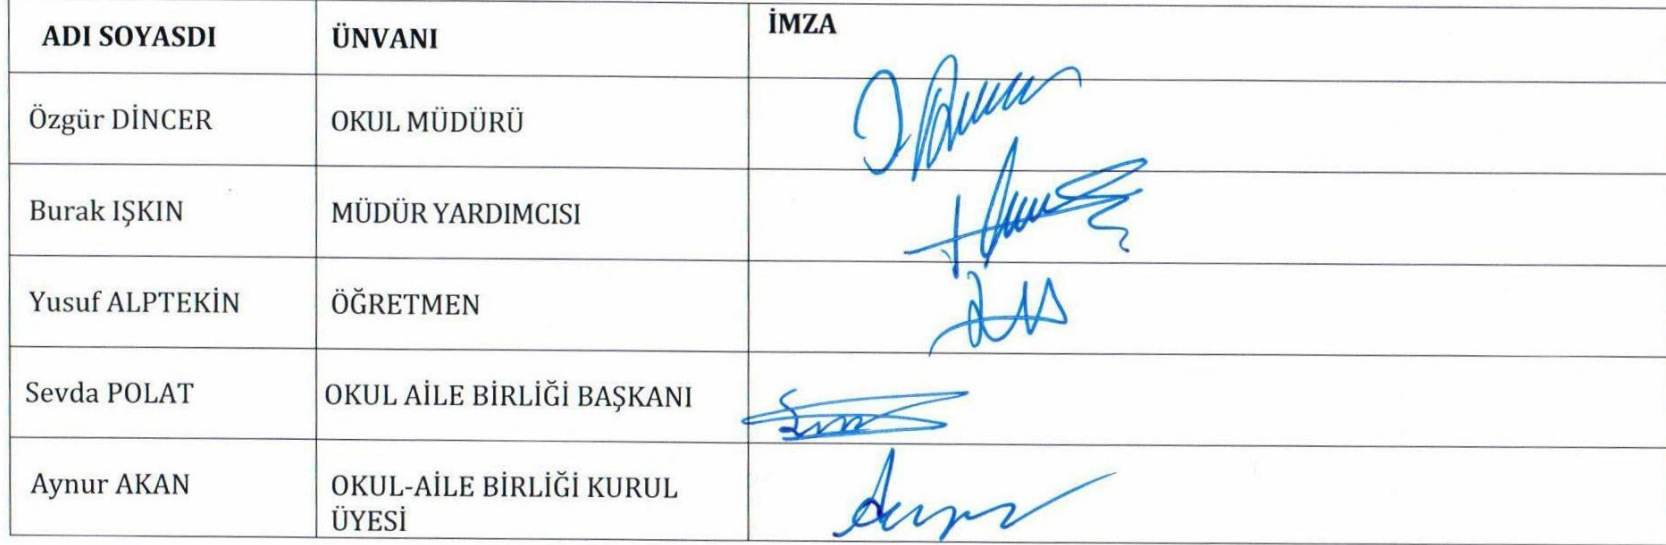 ADI SOYASDI ÜNVANI İMZA
Özgür DİNCER OKUL MÜDÜRÜ
Burak IŞKIN MÜDÜR YARDIMCISI
Yusuf ALPTEKİN ÖĞRETMEN
Sevda POLAT OKUL AİLE BİRLİĞİ BAŞKANI
Aynur AKAN OKUL-AİLE BİRLİĞİ KURUL
ÜYESİ